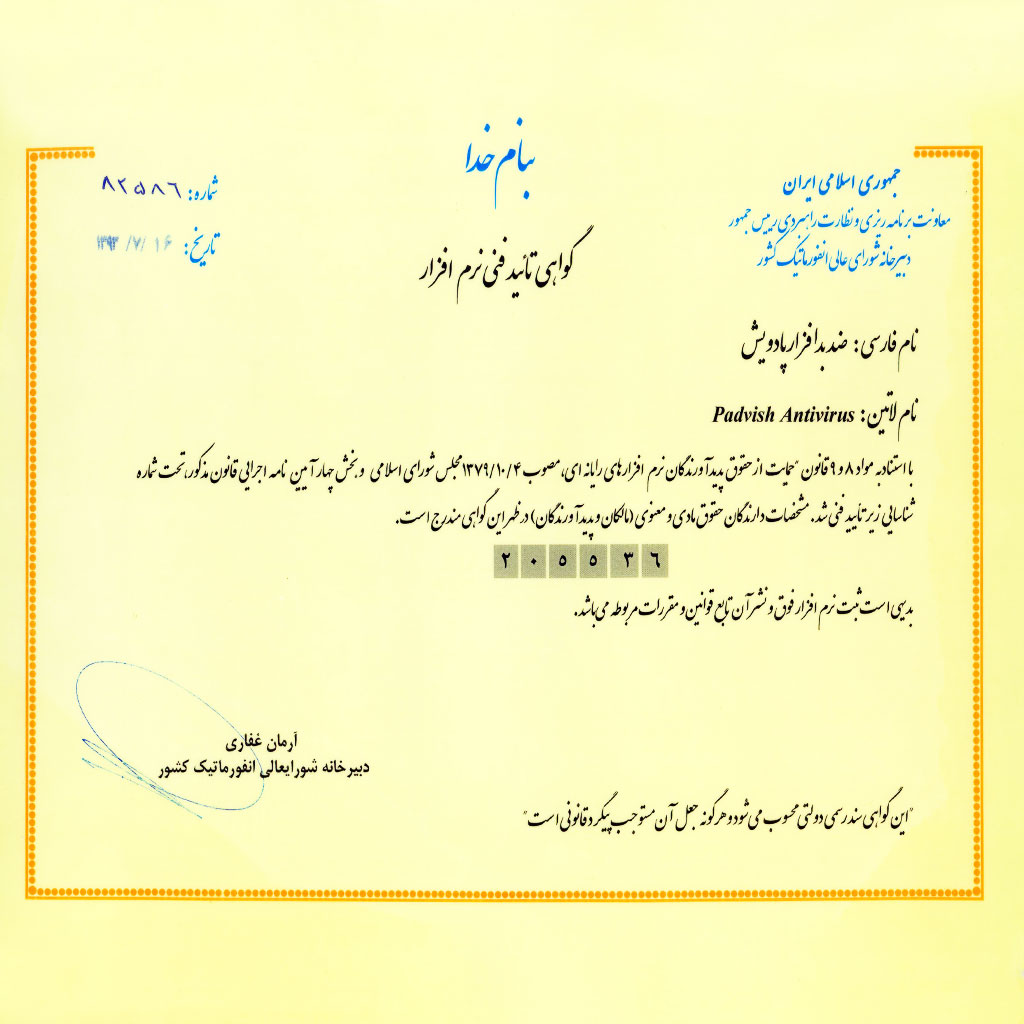 بنام خدا
جمهوری اسلامی ایران
معاونت برنامه ریزی و نظارت راهبردی رییس جمهور
دبیرخانه شورای عالی انفورماتیک کشور
شماره: ۸۲۵۸۶
تاریخ: ۱۶ /۷/ ۹۳
گواهی تائید فنی نرم افزار
نام فارسی: ضد بدافزار پادویش
نام لاتین: Padvish Antivirus
با استناد به مواد ۸ و ۹ قانون "حمایت از حقوق پدیدآورندگان نرم افزارهای رایانه ای، مصوب ۱۳۷۹/۱۰/۴ مجلس شورای اسلامی و بخش چهار آیین نامه اجرایی قانون مذکور، تحت شماره
شناسایی زیر تأیید فنی شد. مشخصات دارندگان حقوق مادی و معنوی (مالکان و پدیدآورندگان) در ظهر این گواهی مندرج است.
۲ ۰ ۵ ۵ ۳ ۶
بدیهی است ثبت نرم افزار فوق و نشر آن تابع قوانین و مقررات مربوطه می باشد.
آرمان غفاری
دبیرخانه شورایعالی انفورماتیک کشور
"این گواهی سند رسمی دولتی محسوب می شود و هرگونه جعل آن مستوجب پیگرد قانونی است"